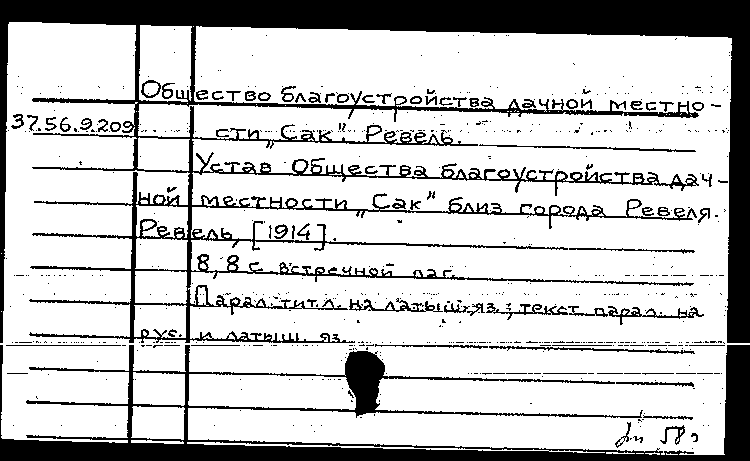 Общество благоустройства дачной местно-
37.56.9.209 сти „Сак". Ревель.
Устав Общества благоустройства дач-
ной местности „Сак" близ города Ревеля.
Ревель, [1914].
8, 8 с встречной паг.
Парал. тит. л. на латыш. яз.; текст парал. на
рус. и латыш. яз.
58